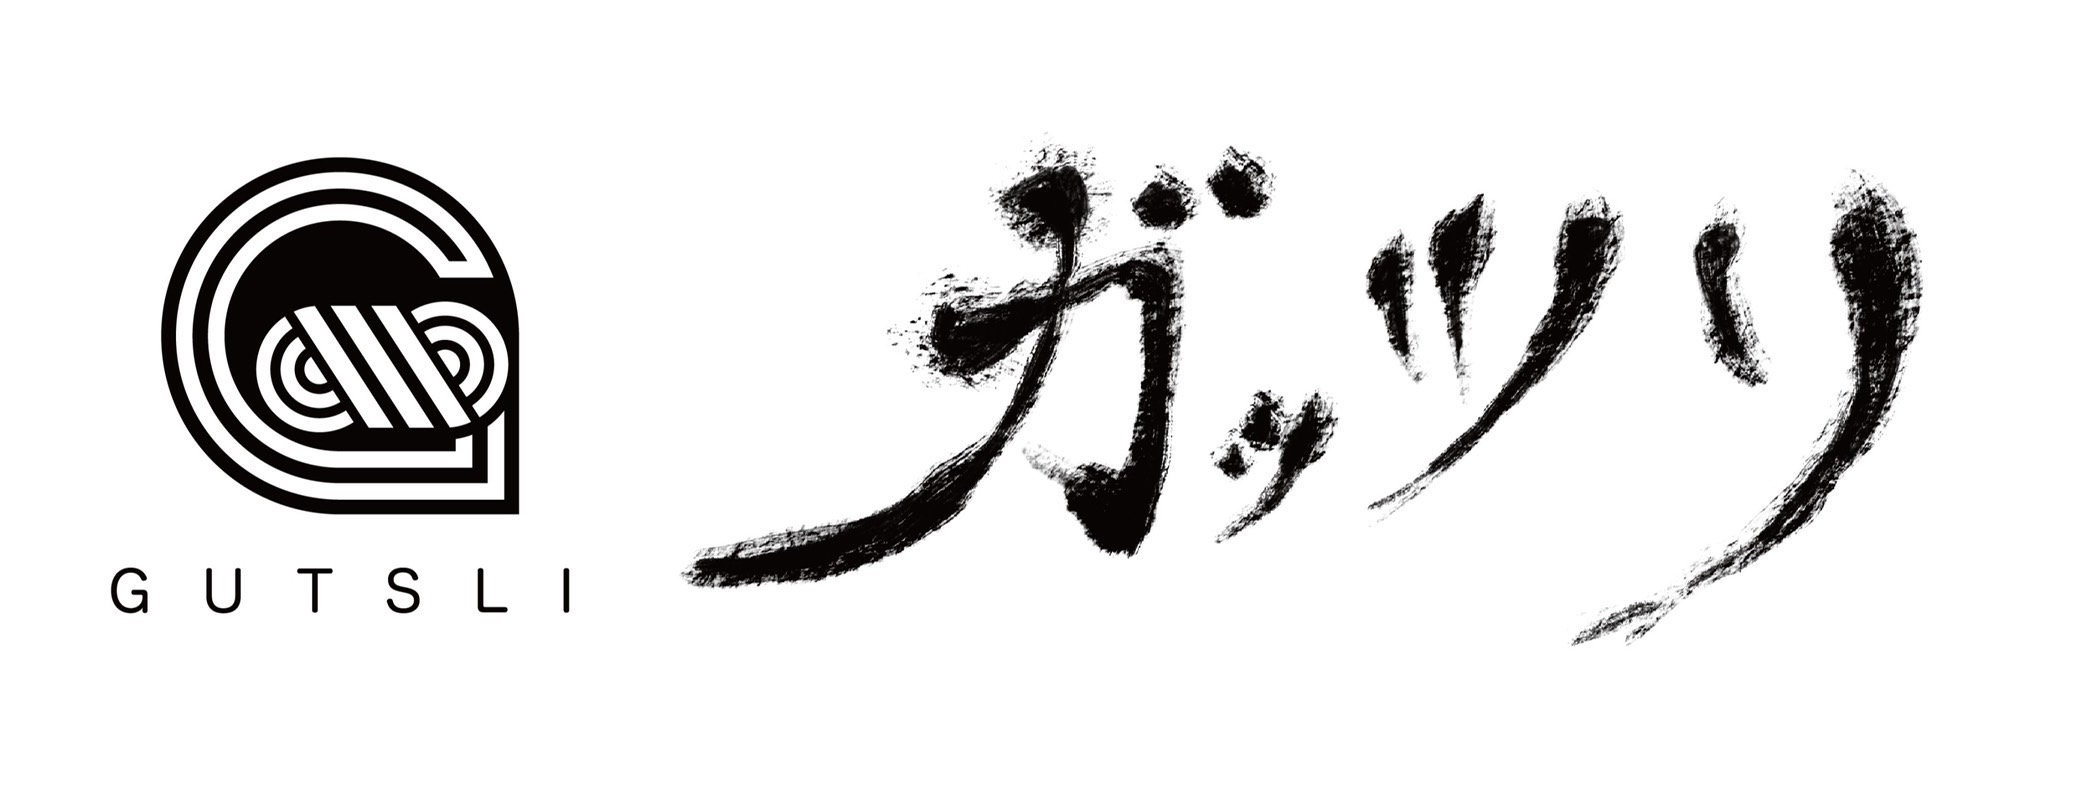 GUTSLI
ガッツリ